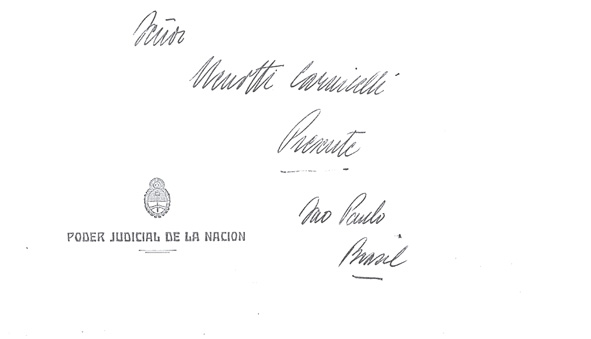 Señor
Menotti Carnicelli
Presente
Sao Paulo
Brasil
PODER JUDICIAL DE LA NACION